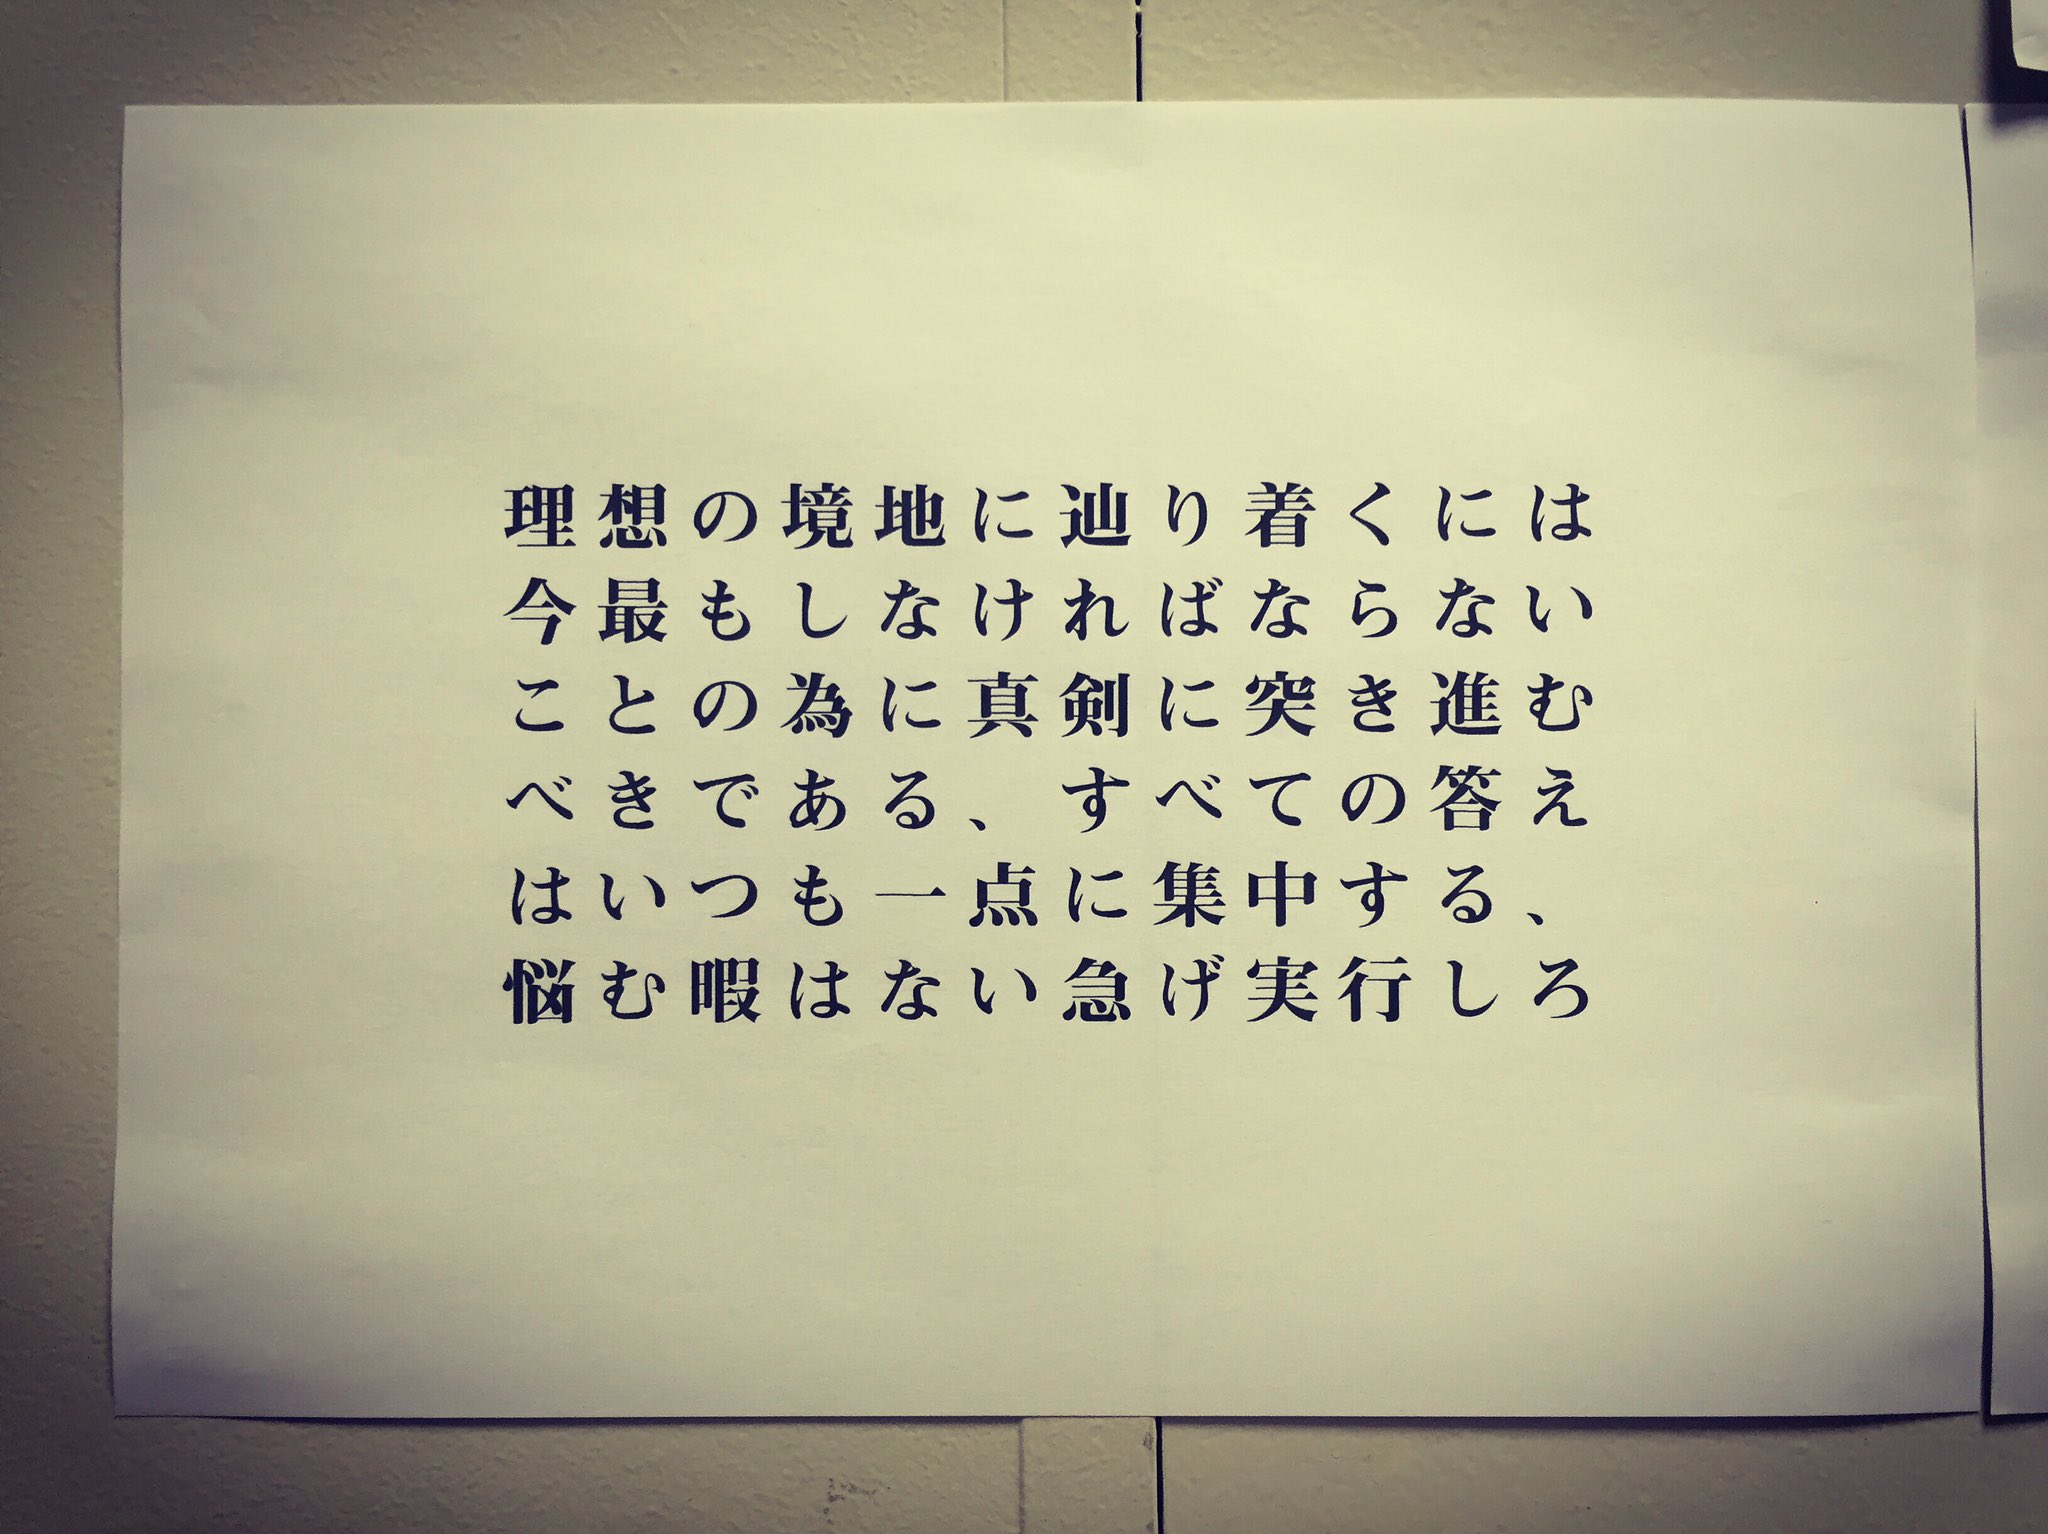 理想の境地に辿り着くには
今最もしなければならない
ことの為に真剣に突き進む
べきである、すべての答え
はいつも一点に集中する、
悩む暇はない急げ実行しろ